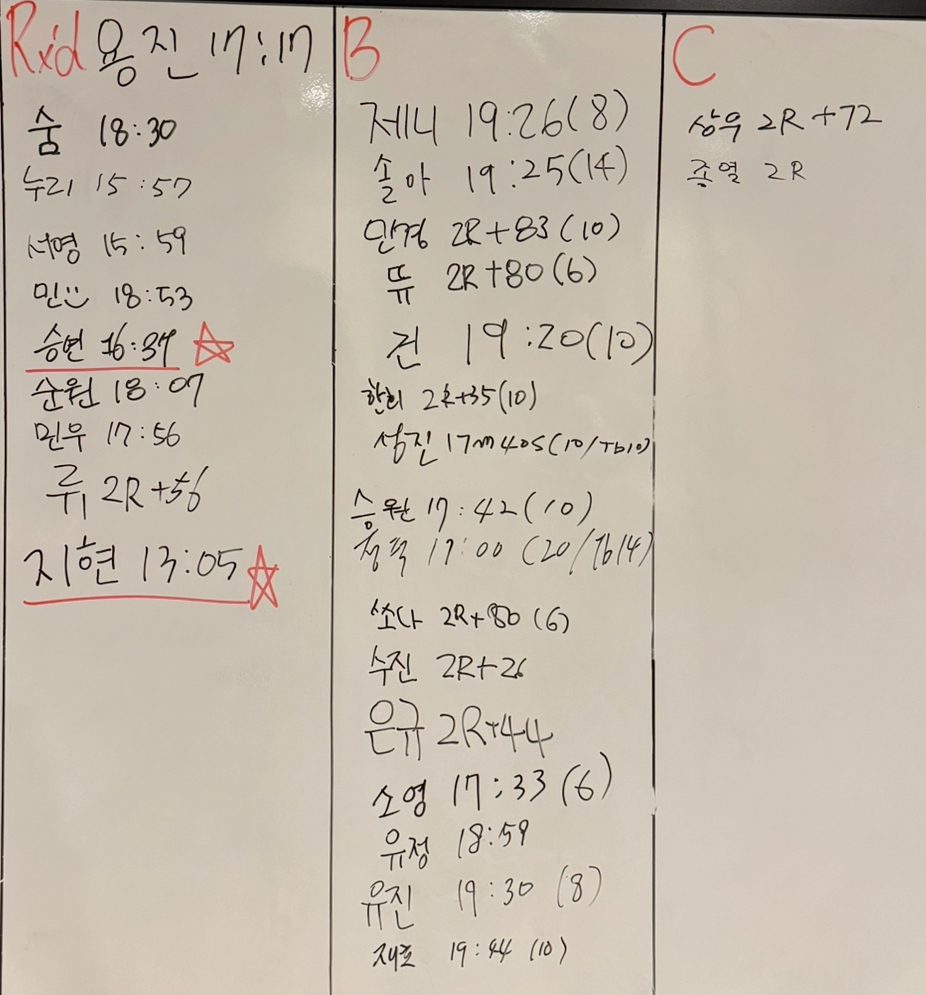 Rx'd 용진 17:17
숨 18:30
누리 15:57
서영 15:59
민 18:53
승연 16:37
순원 18:07
민우 17:56
류 2R+56
지현 13:05
B
제니 19:26(8)
솔아 19:25(14)
민경 2R+83(10)
뜌 2R+80(6)
건 19:20(10)
한희 2R+35(10)
성진 17m40s(10/Tb10)
승원 17:42(10)
17:00 (20/Tb14)
쏘다 2R+80 (6)
수진 2R+26
은규 2R+44
소영 17:33 (6)
유정 18:59
유진 19:30 (8)
재호 19:44 (10)
C
상우 2R+72
종열 2R